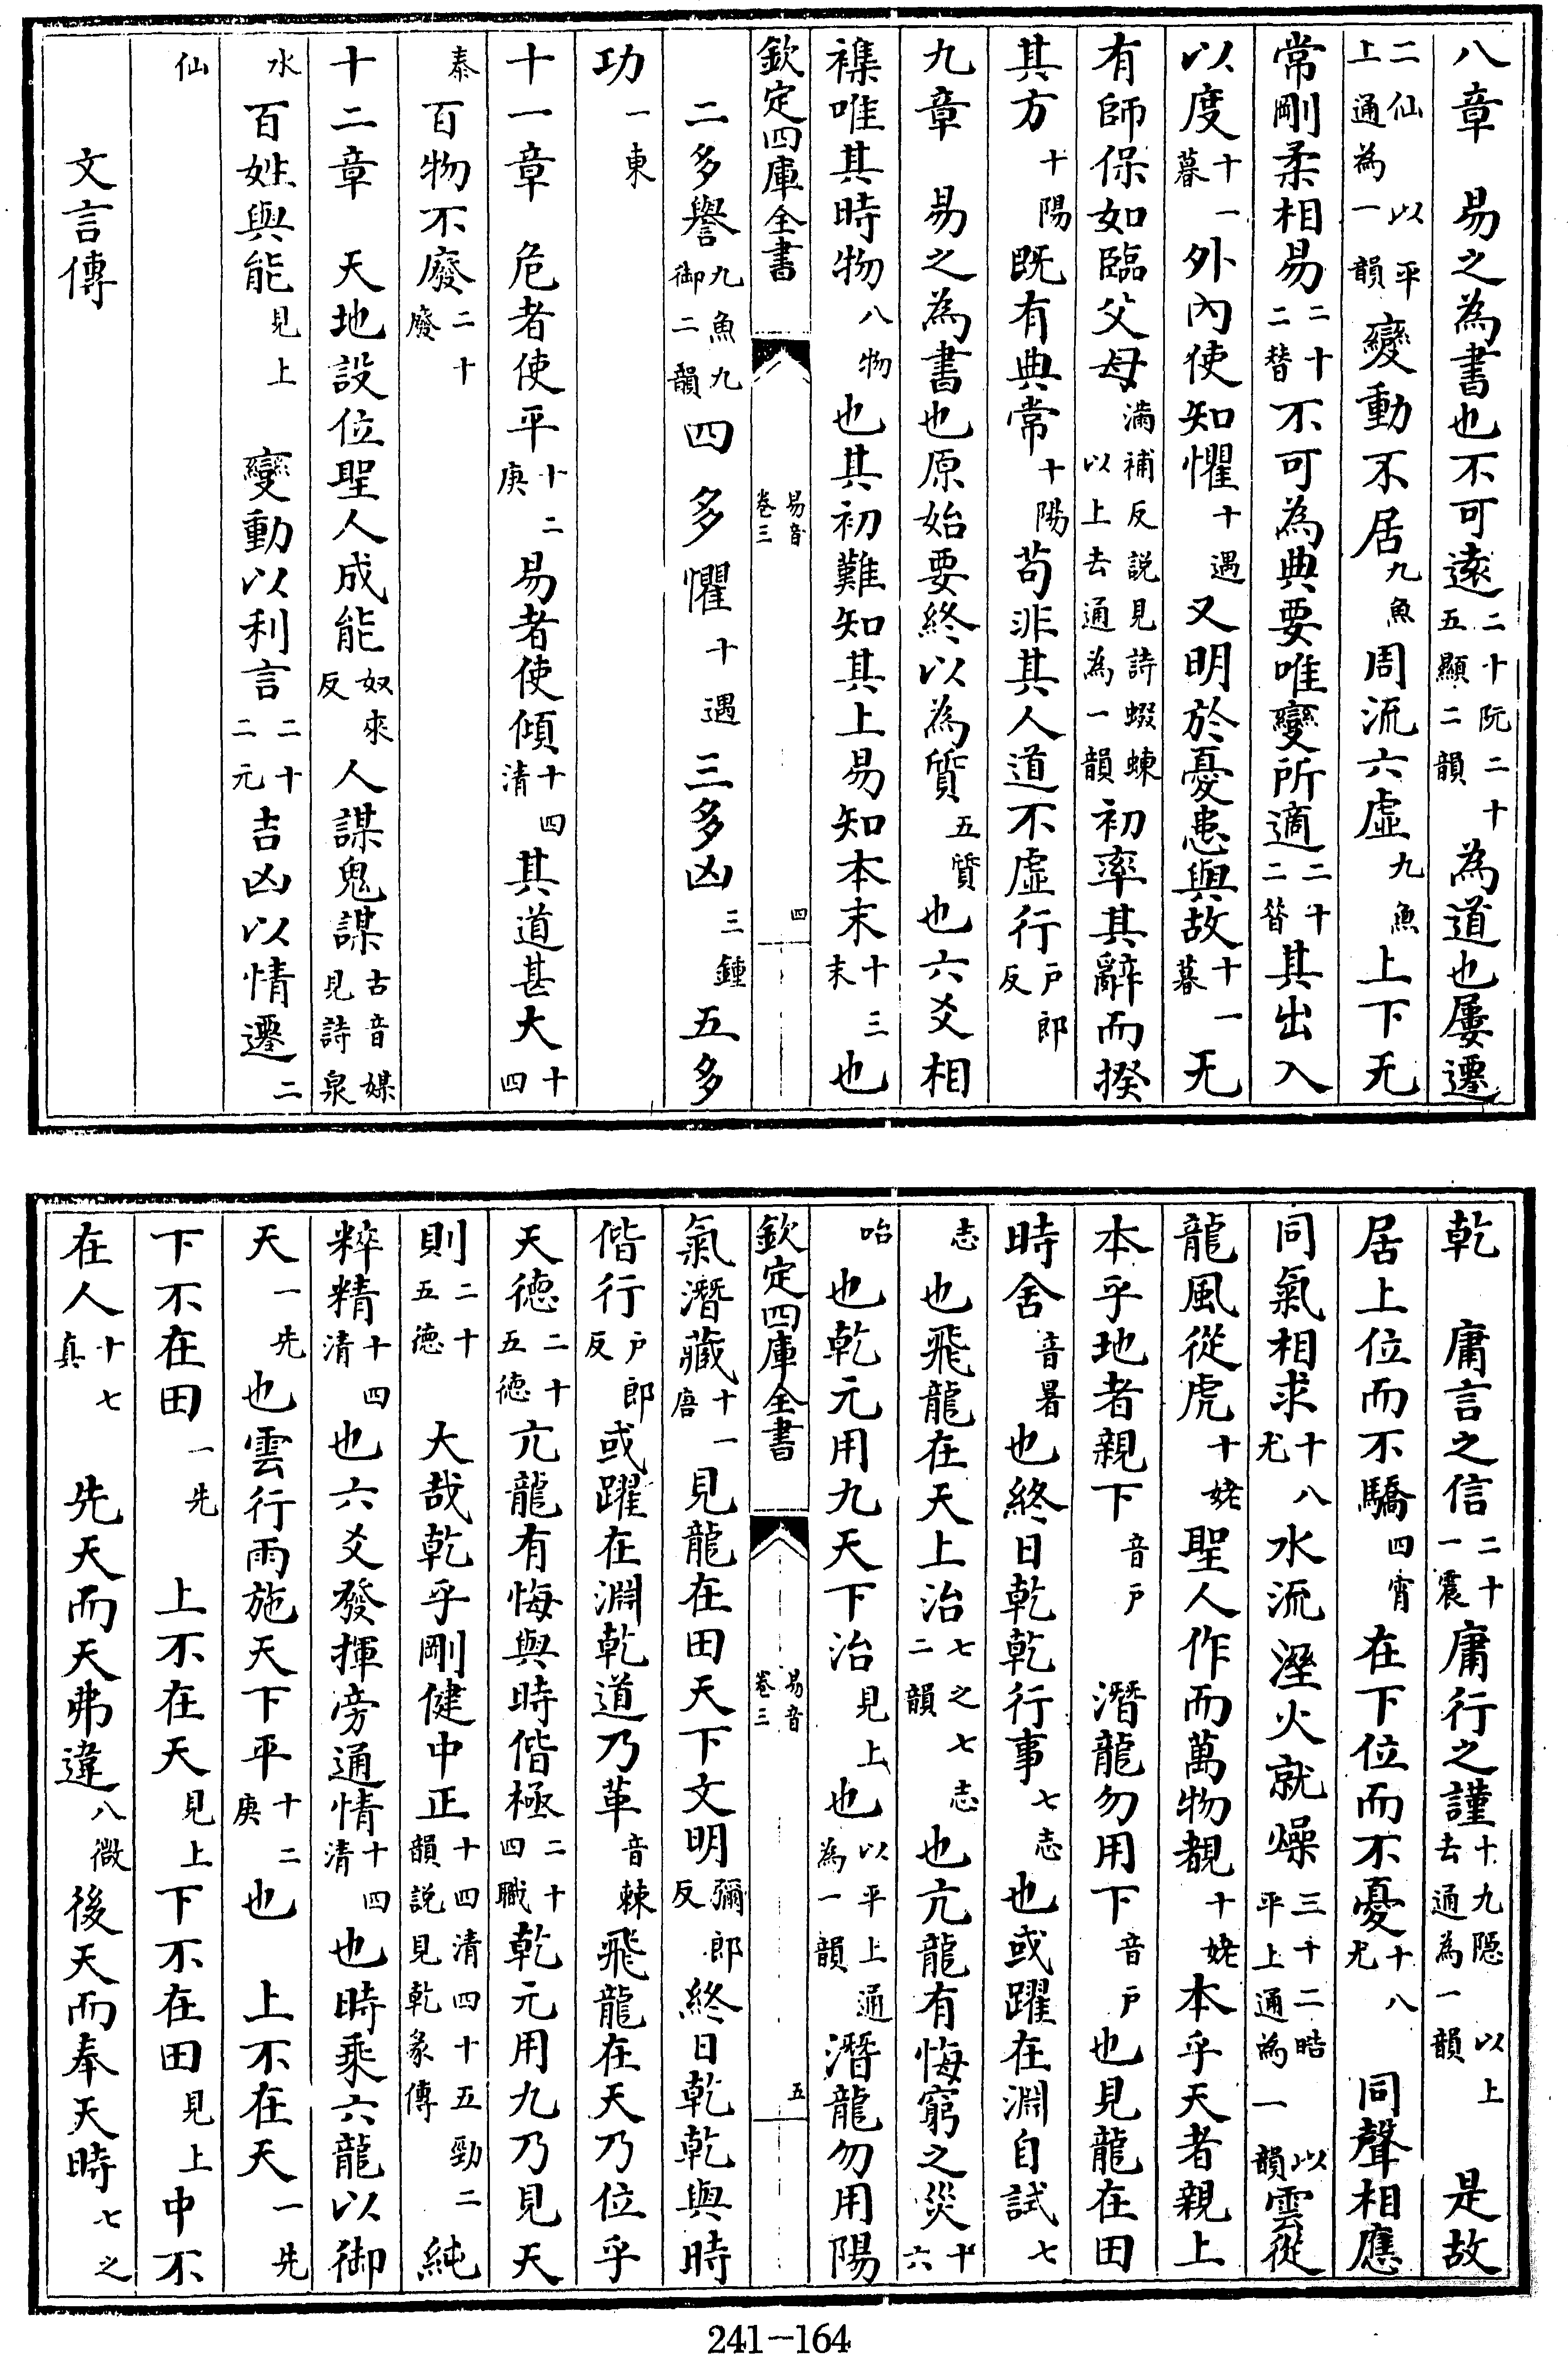 八章　易之為書也不可遠二十阮二十五顯二韻為道也屢遷
二仙以平上通為一韻變動不居九魚周流六虛九魚上下无
常剛柔相易二十二昔不可為典要唯變所適二十二昔其出入
以度十一暮外內使知懼十遇又明於憂患與故十一暮无
有師保如臨父母滿補反說見詩蝃蝀以上去通為一韻初率其辭而揆
其方十陽既有典常十陽苟非其人道不虛行戶郎反
九章　易之為書也原始要終以為質五質也六爻相
襍唯其時物八物也其初難知其上易知本末十三末也
欽定四庫全書　易音卷三　四
二多譽九魚九御二韻四多懼十遇三多凶三鍾五多
功一東
十一章　危者使平十二庚易者使傾十四清其道甚大十四
泰百物不廢二十廢
十二章　天地設位聖人成能奴來反人謀鬼謀古音媒見詩泉
水百姓與能見上　變動以利言二十二元吉凶以情遷二
仙
文言傳
乾　庸言之信二十一震庸行之謹十九隱以上去通為一韻　是故
居上位而不驕四宵在下位而不憂十八尤　同聲相應
同氣相求十八尤水流溼火就燥三十二晧以平上通為一韻雲從
龍風從虎十姥聖人作而萬物覩十姥本乎天者親上
本乎地者親下音戶　潛龍勿用下音戶也見龍在田
時舍音暑也終日乾乾行事七志也或躍在淵自試七
志也飛龍在天上治七之七志二韻也亢龍有悔窮之災十六
咍也乾元用九天下治見上也以平上通為一韻潛龍勿用陽
欽定四庫全書　易音卷三　五
氣潛藏十一唐見龍在田天下文明彌郎反終日乾乾與時
偕行戶郎反或躍在淵乾道乃革音棘飛龍在天乃位乎
天德二十五德亢龍有悔與時偕極二十四職乾元用九乃見天
則二十五德　大哉乾乎剛健中正十四清四十五勁二韻說見乾彖傳純
粹精十四清也六爻發揮旁通情十四清也時乘六龍以御
天一先也雲行雨施天下平十二庚也　上不在天一先
下不在田一先　上不在天見上下不在田見上中不
在人十七真　先天而天弗違八微後天而奉天時七之
241-164